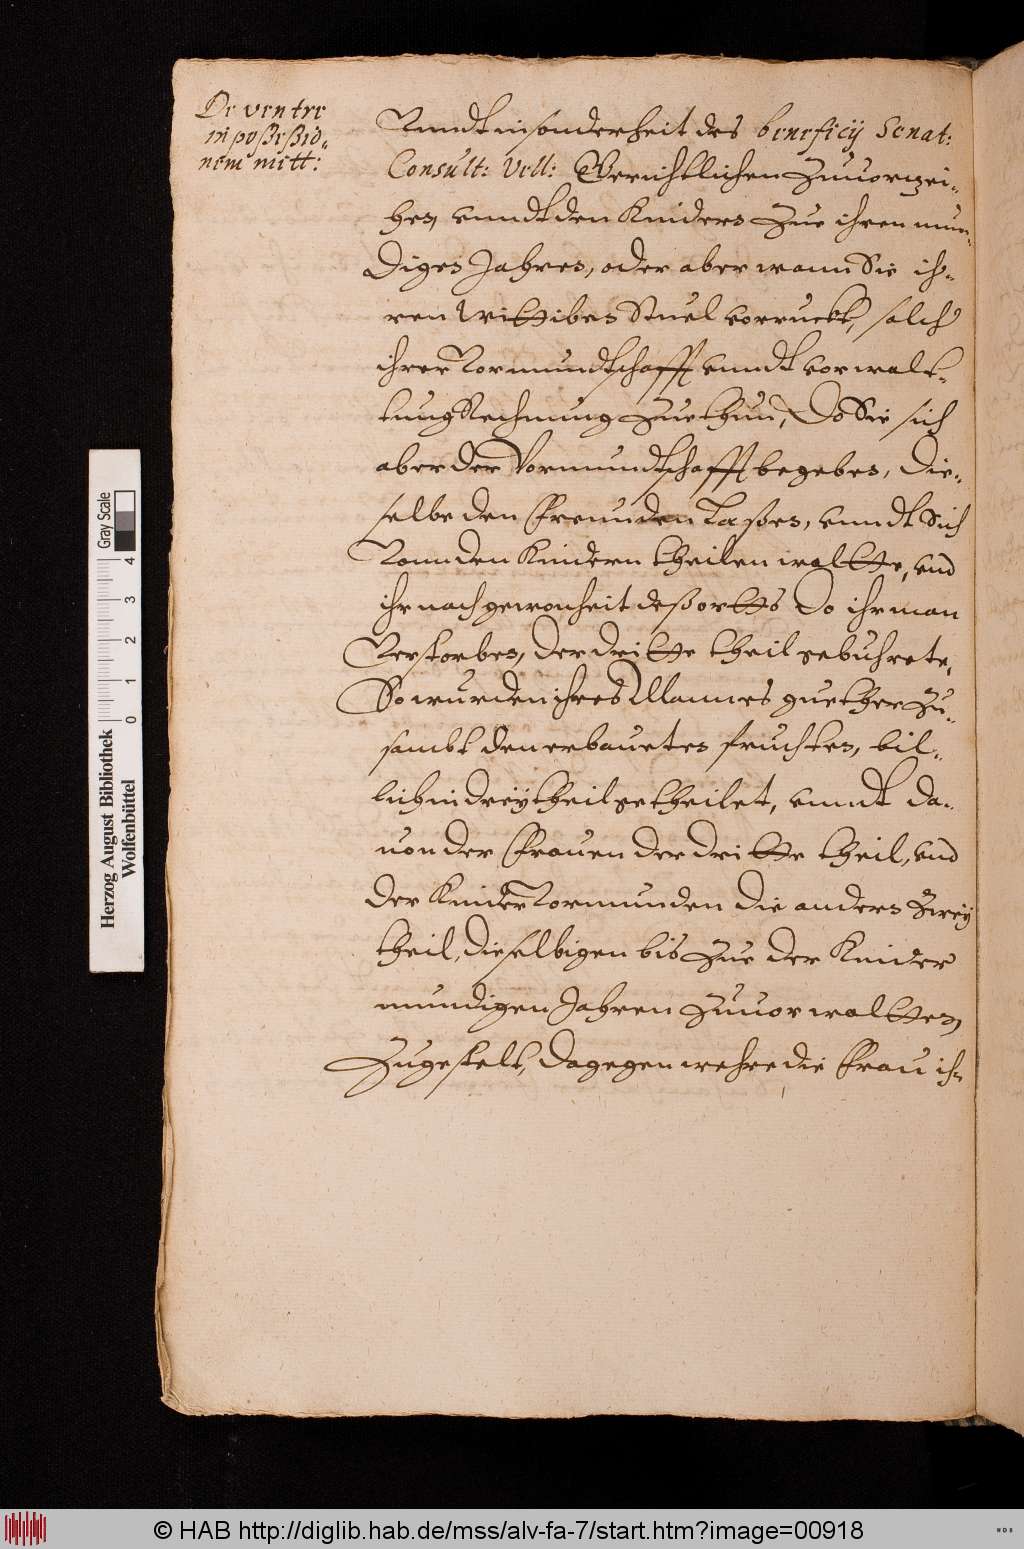 De ventre
in poßeßio-
nem mitt:
Vnndt in sonderheit des beneficij Senat:
Consult: Vell: Gerichtlichen zuuorzei-
hen, vnndt den Kindern zue ihren mun-
digen Jahren, oder aber wann Sie ih-
ren Wittiben Stuel vorruckt, solch
ihrer Vormundtschafft vnndt vorwalt-
tung Rechnung zue thun, Do Sie sich
aber der Vormundtschafft begeben, die-
selbe den Freunden laßen, vnndt Sich
Von den Kindern theilen wolte, vnd
ihr nach gewonheit deß orts Do ihr man
Verstorben, der dritte theil gebuhrete,
So wurden ihres Mannes guether zu-
sambt den erbaueten fruchten, bil-
lich in drey theil getheilet, vnndt da-
uon der Frauen der dritte theil, vnd
der Kinder Vormunden die andern Zwey
theil, dieselbigen bis zue der Kinder
mundigen Jahren zuuorwalten,
zugestelt, dagegen wehre die Frau ih-
Herzog August Bibliothek
Wolfenbüttel
Gray Scale
0 1 2 3 4
© HAB http://diglib.hab.de/mss/alv-fa-7/start.htm?image=00918